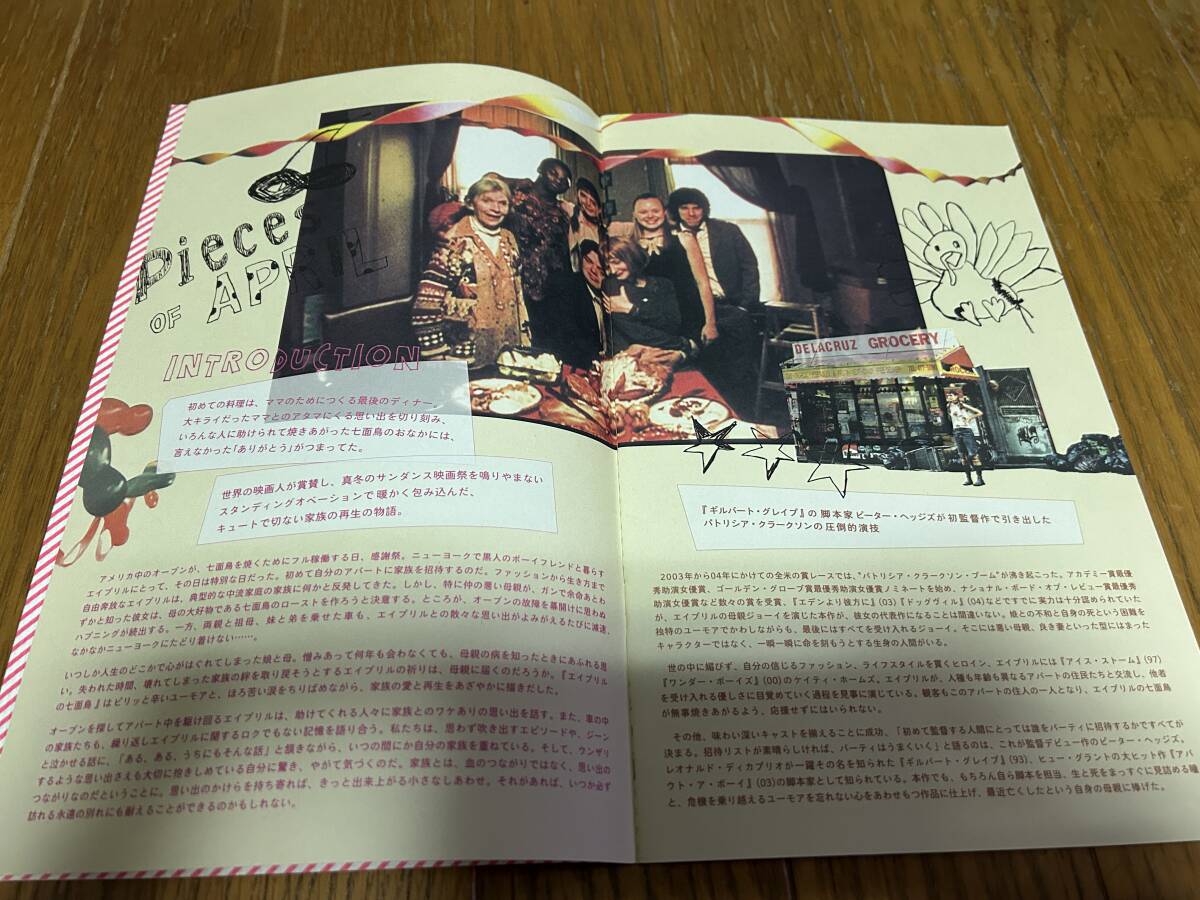 Pieces
OF APRIL
INTRODUCTION
初めての料理は、ママのためにつくる最後のディナー。
大キライだったママとのアタマにくる思い出を切り刻み、
いろんな人に助けられて焼きあがった七面鳥のおなかには、
言えなかった「ありがとう」がつまってた。
世界の映画人が賞賛し、真冬のサンダンス映画祭を鳴りやまない
スタンディングオベーションで暖かく包み込んだ、
キュートで切ない家族の再生の物語。
アメリカ中のオーブンが、七面鳥を焼くためにフル稼働する日、感謝祭。ニューヨークで黒人のボーイフレンドと暮らす
エイプリルにとって、その日は特別な日だった。初めて自分のアパートに家族を招待するのだ。ファッションから生き方まで
自由奔放なエイプリルは、典型的な中流家庭の家族に何かと反発してきた。しかし、特に仲の悪い母親が、ガンで余命あとわ
ずかと知った彼女は、母の大好物である七面鳥のローストを作ろうと決意する。ところが、オーブンの故障を幕開けに思わぬ
ハプニングが続出する。一方、両親と祖母、妹と弟を乗せた車も、エイプリルとの散々な思い出がよみがえるたびに減速、
なかなかニューヨークにたどり着けない……。
いつしか人生のどこかで心がはぐれてしまった娘と母。憎みあって何年も会わなくても、母親の病を知ったときにあふれる思
い。失われた時間、壊れてしまった家族の絆を取り戻そうとするエイプリルの祈りは、母親に届くのだろうか。『エイプリル
の七面鳥』はピリッと辛いユーモアと、ほろ苦い涙をちりばめながら、家族の愛と再生をあざやかに描きだした。
オーブンを探してアパート中を駆け回るエイプリルは、助けてくれる人々に家族とのワケありの思い出を話す。また、車の中
の家族たちも、繰り返しエイプリルに関するロクでもない記憶を語り合う。私たちは、思わず吹き出すエピソードや、ジーン
と泣かせる話に、「ある、ある、うちにもそんな話」と頷きながら、いつの間にか自分の家族を重ねている。そして、ウンザリ
するような思い出さえも大切に抱きしめている自分に驚き、やがて気づくのだ。家族とは、血のつながりではなく、思い出の
つながりなのだということに。思い出のかけらを持ち寄れば、きっと出来上がる小さなしあわせ。それがあれば、いつか必ず
訪れる永遠の別れにも耐えることができるのかもしれない。
DELACRUZ GROCERY
『ギルバート・グレイプ』の脚本家ピーター・ヘッジズが初監督作で引き出した
パトリシア・クラークソンの圧倒的演技
2003年から04年にかけての全米の賞レースでは、"パトリシア・クラークソン・ブーム"が沸き起こった。アカデミー賞最優
秀助演女優賞、ゴールデン・グローブ賞最優秀助演女優賞ノミネートを始め、ナショナル・ボード・オブ・レビュー賞最優秀
助演女優賞など数々の賞を受賞、『エデンより彼方に』(03)『ドッグヴィル』(04)などですでに実力は十分認められていた
が、エイプリルの母親ジョーイを演じた本作が、彼女の代表作になることは間違いない。娘との不和と自身の死という困難を
独特のユーモアでかわしながらも、最後にはすべてを受け入れるジョーイ。そこには悪い母親、良き妻といった型にはまった
キャラクターではなく、一瞬一瞬に命を刻もうとする生身の人間がいる。
世の中に媚びず、自分の信じるファッション、ライフスタイルを貫くヒロイン、エイプリルには『アイス・ストーム』(97)
『ワンダー・ボーイズ』(00)のケイティ・ホームズ。エイプリルが、人種も年齢も異なるアパートの住民たちと交流し、他者
を受け入れる優しさに目覚めていく過程を見事に演じている。観客もこのアパートの住人の一人となり、エイプリルの七面鳥
が無事焼きあがるよう、応援せずにはいられない。
その他、味わい深いキャストを揃えることに成功、「初めて監督する人間にとっては誰をパーティに招待するかですべてが
決まる。招待リストが素晴らしければ、パーティはうまくいく」と語るのは、これが監督デビュー作のピーター・ヘッジズ。
レオナルド・ディカプリオが一躍その名を知られた『ギルバート・グレイプ』(93)、ヒュー・グラントの大ヒット作『アバ
ウト・ア・ボーイ』(03)の脚本家として知られている。本作でも、もちろん自ら脚本を担当、生と死をまっすぐに見詰める瞳
と、危機を乗り越えるユーモアを忘れない心をあわせもつ作品に仕上げ、最近亡くしたという自身の母親に捧げた。